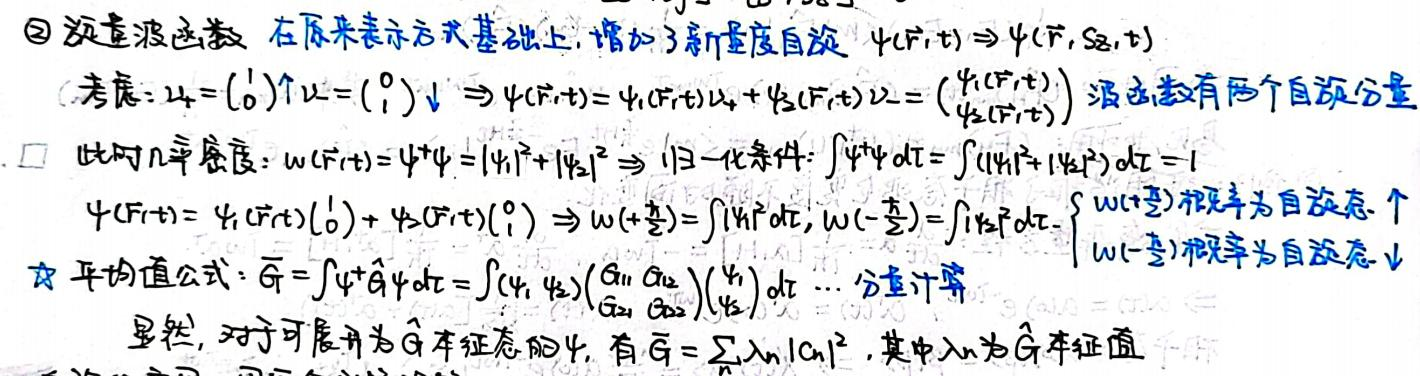 ② 旋量波函数 在原来表示方式基础上,增加了新量度自旋 ψ(r⃗,t) ⇒ ψ(r⃗,Sz,t)
考虑: ν₊ = (1 0)↑ ν₋ = (0 1)↓ ⇒ ψ(r⃗,t) = ψ₁(r⃗,t)ν₊ + ψ₂(r⃗,t)ν₋ = (ψ₁(r⃗,t) ψ₂(r⃗,t)) 波函数有两个自旋分量
此时几率密度: w(r⃗,t) = ψ⁺ψ = |ψ₁|² + |ψ₂|² ⇒ 归一化条件: ∫ψ⁺ψ dτ = ∫(|ψ₁|² + |ψ₂|²) dτ = 1
ψ(r⃗,t) = ψ₁(r⃗,t)(1 0) + ψ₂(r⃗,t)(0 1) ⇒ w(+ħ/2) = ∫|ψ₁|² dτ, w(-ħ/2) = ∫|ψ₂|² dτ. { w(+ħ/2) 概率为自旋态↑
w(-ħ/2) 概率为自旋态↓
☆ 平均值公式: G̅ = ∫ψ⁺Ĝψ dτ = ∫(ψ₁ ψ₂)(G₁₁ G₁₂ G₂₁ G₂₂)(ψ₁ ψ₂) dτ … 分量计算
显然, 对于可展开为Ĝ本征态的ψ, 有 G̅ = ∑ₙ λₙ|Cₙ|², 其中λₙ为Ĝ本征值